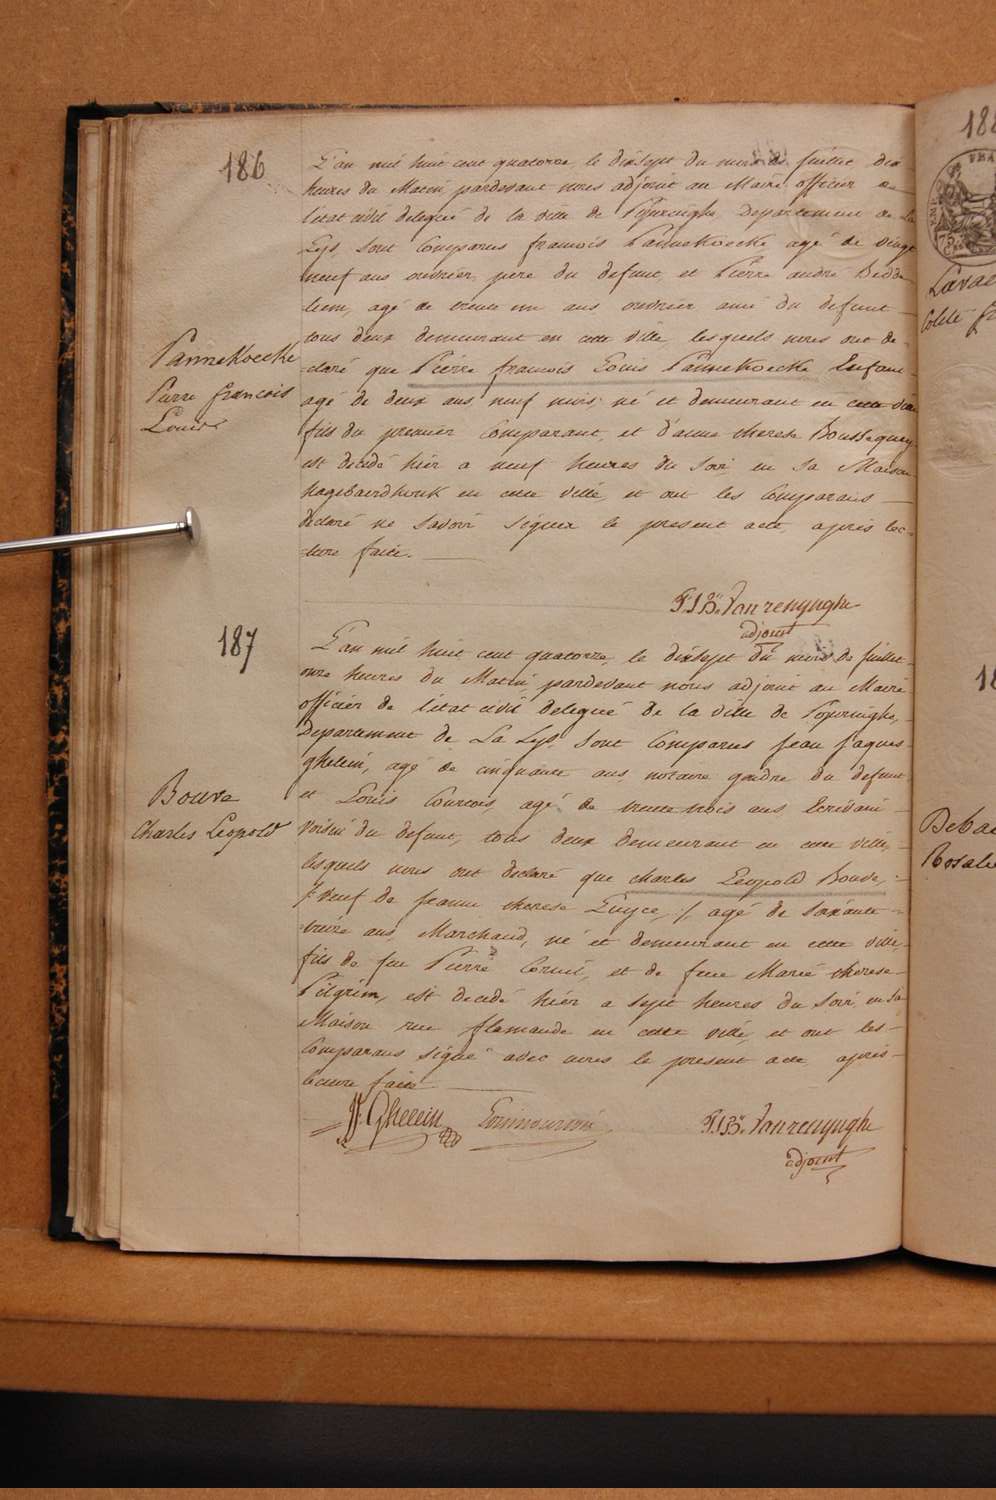 186
L'an mil huit cent quatorze, le dixsept du mois de juillet dix
heures du Matin, pardevant nous adjoint au Maire officier de
l'état civil delegué de la ville de Poperinghe, Departement de La
Lys, sont Comparus francois Pannekoecke agé de vingt
neuf ans ouvrier, pere du defunt, et Pierre andré Bedde
lem, agé de trente un ans ouvrier ami du defunt
tous deux demeurant en cette ville, lesquels nous ont de-
-claré que Pierre francois Louis Pannekoecke Enfant
agé de deux ans neuf mois, né et demeurant en cette ville
fils du premier Comparant, et d'anne therese Boussequey
est decedé hier a neuf heures du soir, en sa Maison
hagebaerdhouk en cette ville, et ont les Comparans
declaré ne savoir signer le present acte, après lec-
-ture faite.
Pannekoecke
Pierre francois
Louis
P.J.Bte. Vanrenynghe
adjoint
187
L'an mil huit cent quatorze, le dixsept du mois de juillet
onze heures du Matin, pardevant nous adjoint au Maire
officier de l'état civil delegué de la ville de Poperinghe,
Departement de La Lys, sont Comparus jean jaques
ghelein, agé de cinquante ans notaire gendre du defunt
et Louis Courtois, agé de trente trois ans Ecrivain
voisin du defunt, tous deux demeurant en cette ville,
lesquels nous ont declaré que charles Leopold Bouve,
/ veuf de jeanne therese Luyce, /, agé de soixante
treize ans, Marchand, né et demeurant en cette ville,
fils de feu Pierre Corneil, et de feue Marie therese
Pilgrim, est decedé hier a sept heures du soir, en sa
Maison rue flamande en cette ville, et ont les
Comparans signé avec nous le present acte après
lecture faite
Bouve
Charles Leopold
JJ. Ghelein
P.J.Bte. Vanrenynghe
adjoint
Colete
Rosalie